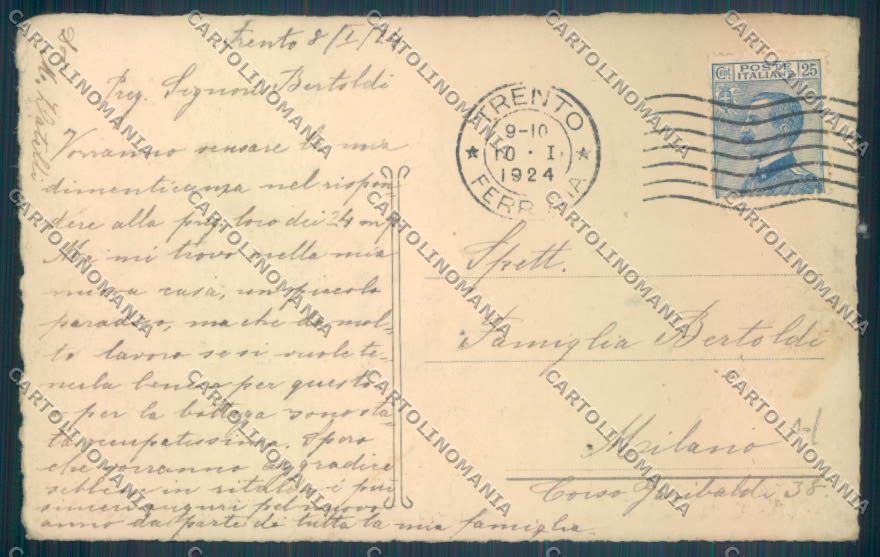 Trento 8/I/24
Preg. Signori Bertoldi
Vorranno scusare la mia
dimenticanza nel rispon=
dere alla loro dei 24 m/p
Mi trovo nella mia
nuova casa, un piccolo
paradiso, ma che dà mol=
to lavoro se si vuole te=
nerla bene e per questo
e per la bottega sono sta=
ta occupatissima. Spero
che vorranno aggradire
sebbene in ritardo i più
sinceri auguri pel nuovo
anno da parte di tutta la mia famiglia
TRENTO
9-10
10 · I
1924
FERROVIA
Cent. POSTE ITALIANE 25
Spett.
Famiglia Bertoldi
Milano
Corso Garibaldi, 38
CARTOLINOMANIA